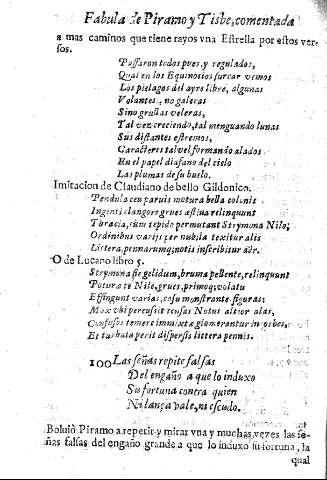 Fabula de Piramo y Tisbe, comentada
a mas caminos que tiene rayos vna Estrella por estos ver-
sos.
Passaron todos pues, y regulados,
Qual en los Equinocios surcar vemos
Los pielagos del ayre libre, algunas
Volantes, no galeras
Sino grullas veleras,
Tal vez creciendo, tal menguando lunas
Sus distantes estremos,
Caracteres tal vel formando alados
En el papel diafano del cielo
Las plumas de su buelo.
Imitacion de Claudiano de bello Gildonico.
Pendula ceu paruis motura bella colonis
Ingenti clangore grues æstiua relinquunt
Thracia, cum tepido permutant Strymona Nilo;
Ordinibus varijs per nubila texitur alis
Littera, pennarumq; notis inscribitur aër.
O de Lucano libro 5.
Strymona sic gelidum, bruma pellente, relinquunt
Poturæ te Nile, grues, primoq; volatu
Effingunt varias, casu monstrante figuras;
Mox vbi percussit tensas Notus altior alas,
Confusos temere immixtæ glomerantur in orbes,
Et turbata perit dispersis littera pennis.
100 Las señas repite falsas
Del engaño a que lo induxo
Su fortuna contra quien
Ni lança vale, ni escudo.
Boluiò Piramo a repetir y mirar vna y muchas vezes las se-
ñas falsas del engaño grande a que lo induxo su fortuna, la
qual